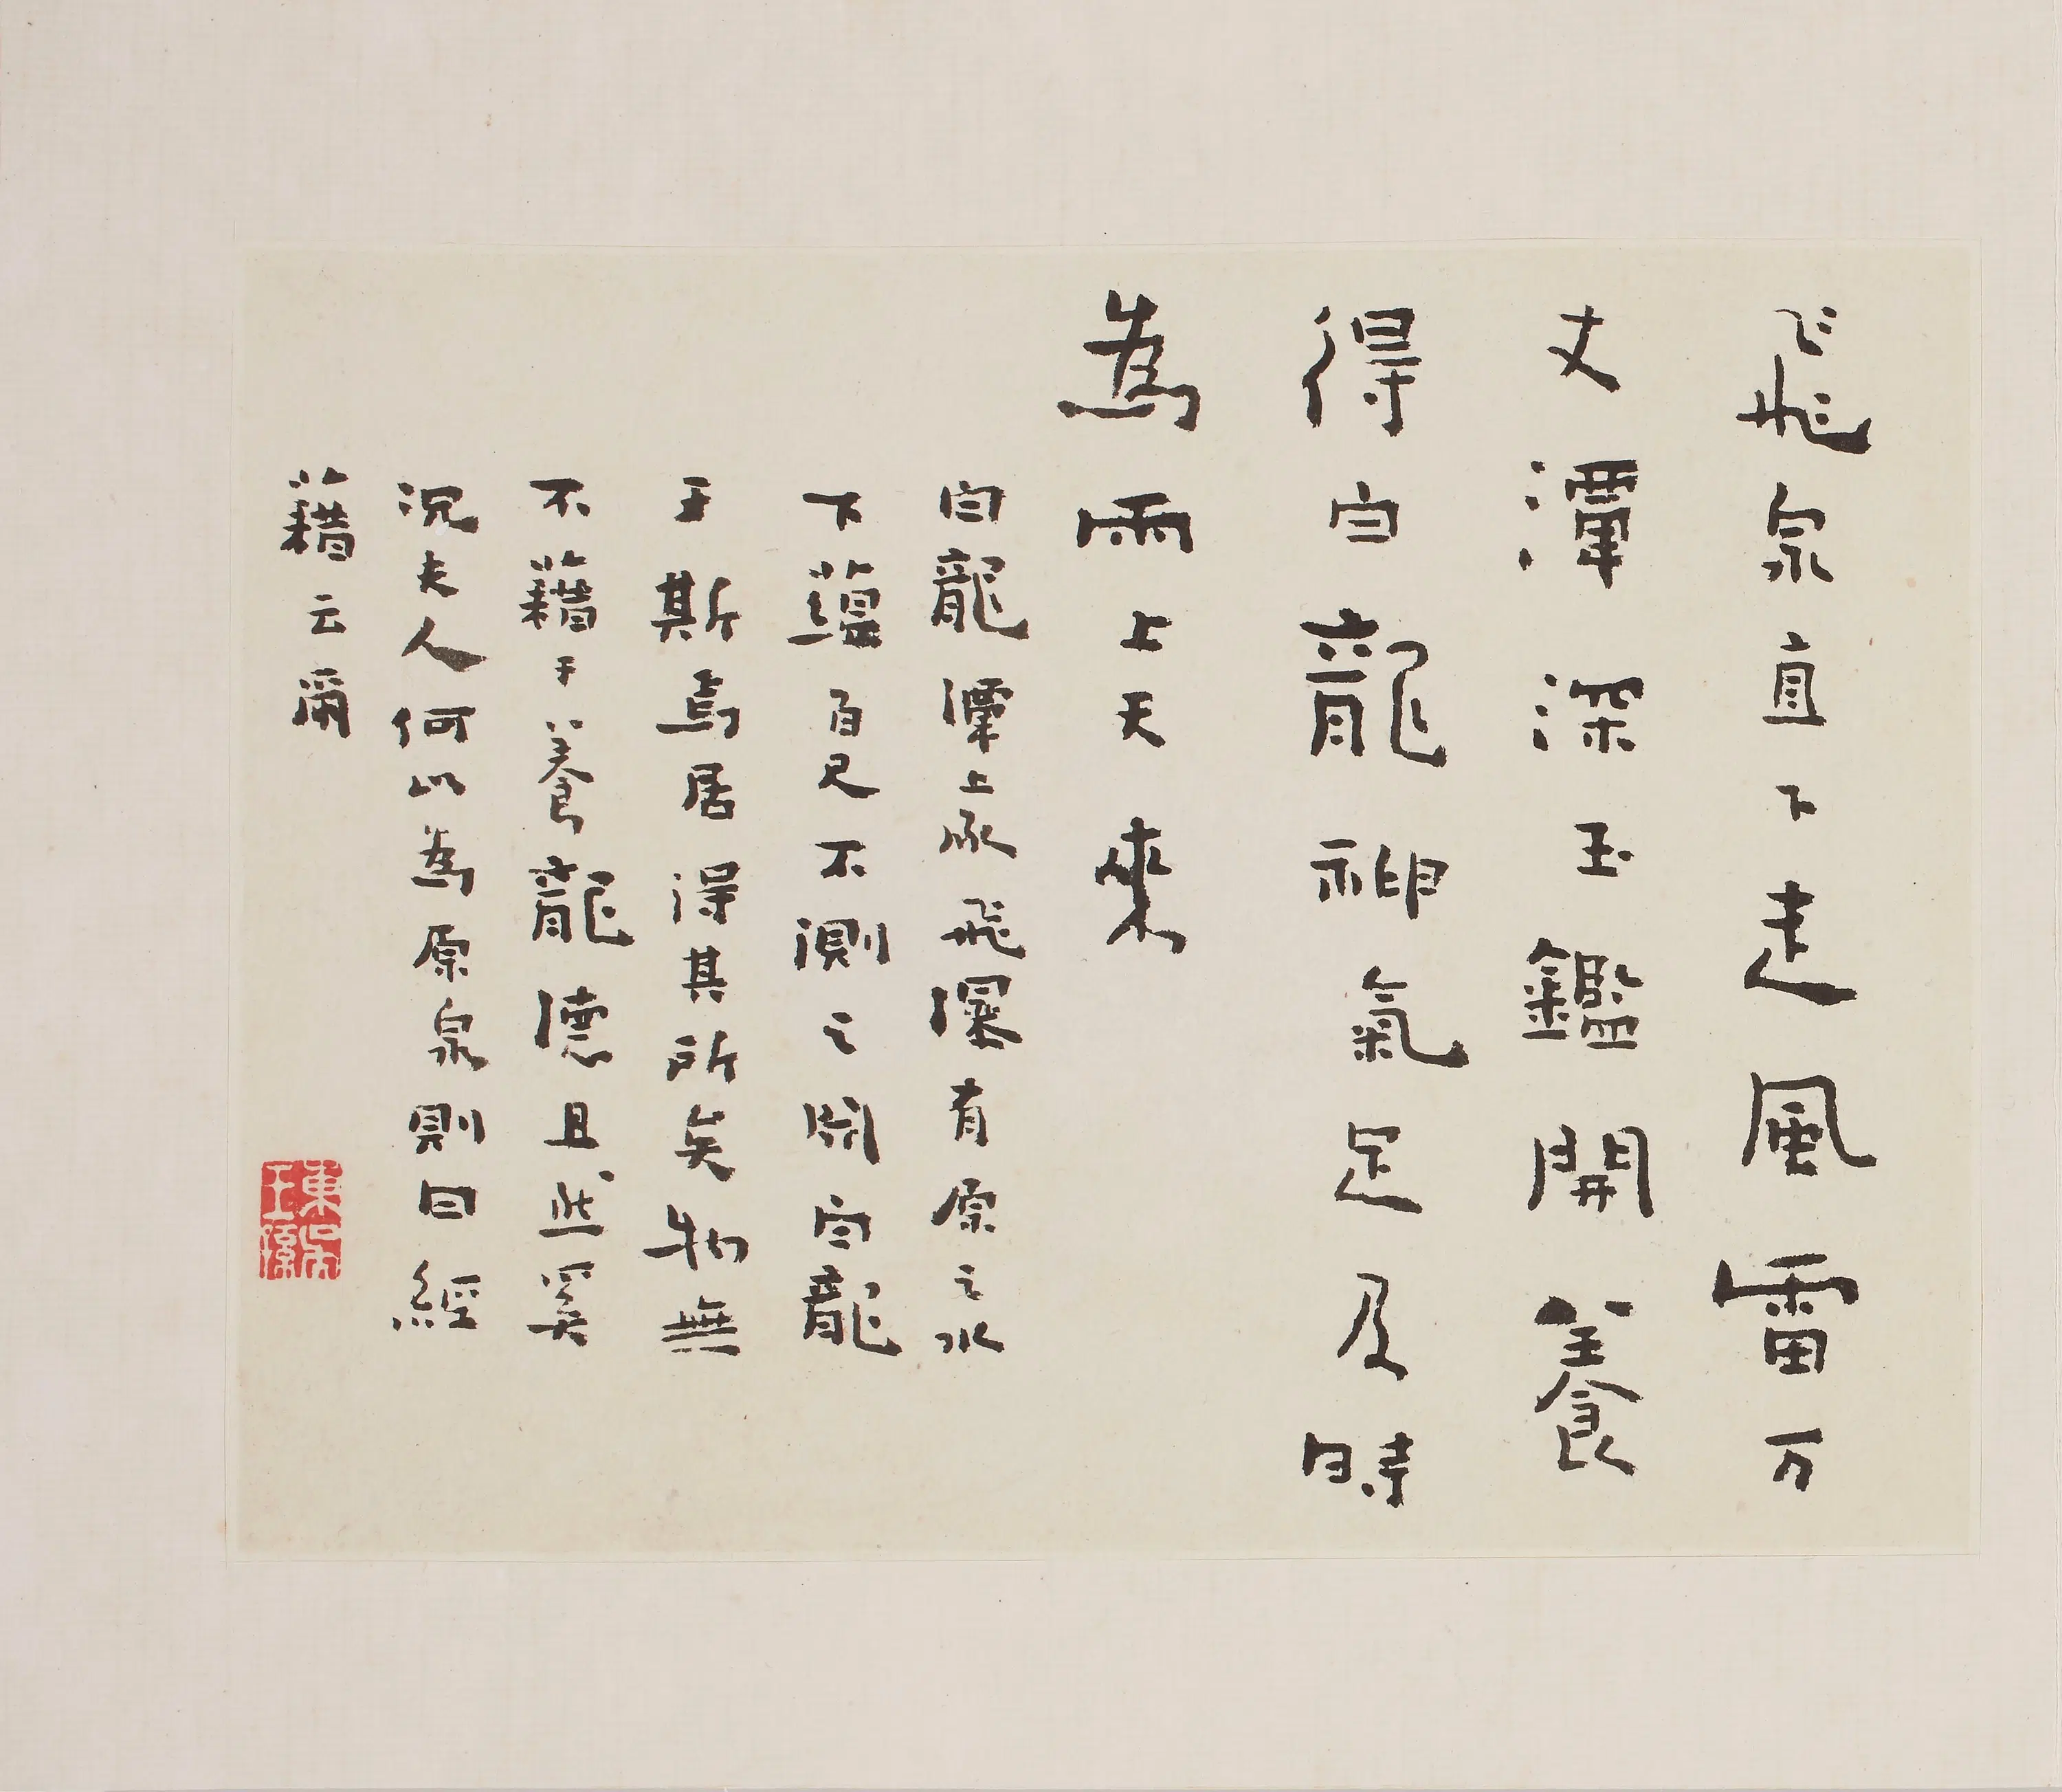 飛泉直下走風雷万
丈潭深玉鑑開養
得白龍神氣足及時
為雨上天來
白龍潭上承飛瀑有原之水
下蘊百尺不測之淵白龍
于斯焉居得其所矣物無
不藉于養龍德且然奚
況夫人何以為原泉則曰經
藉云爾